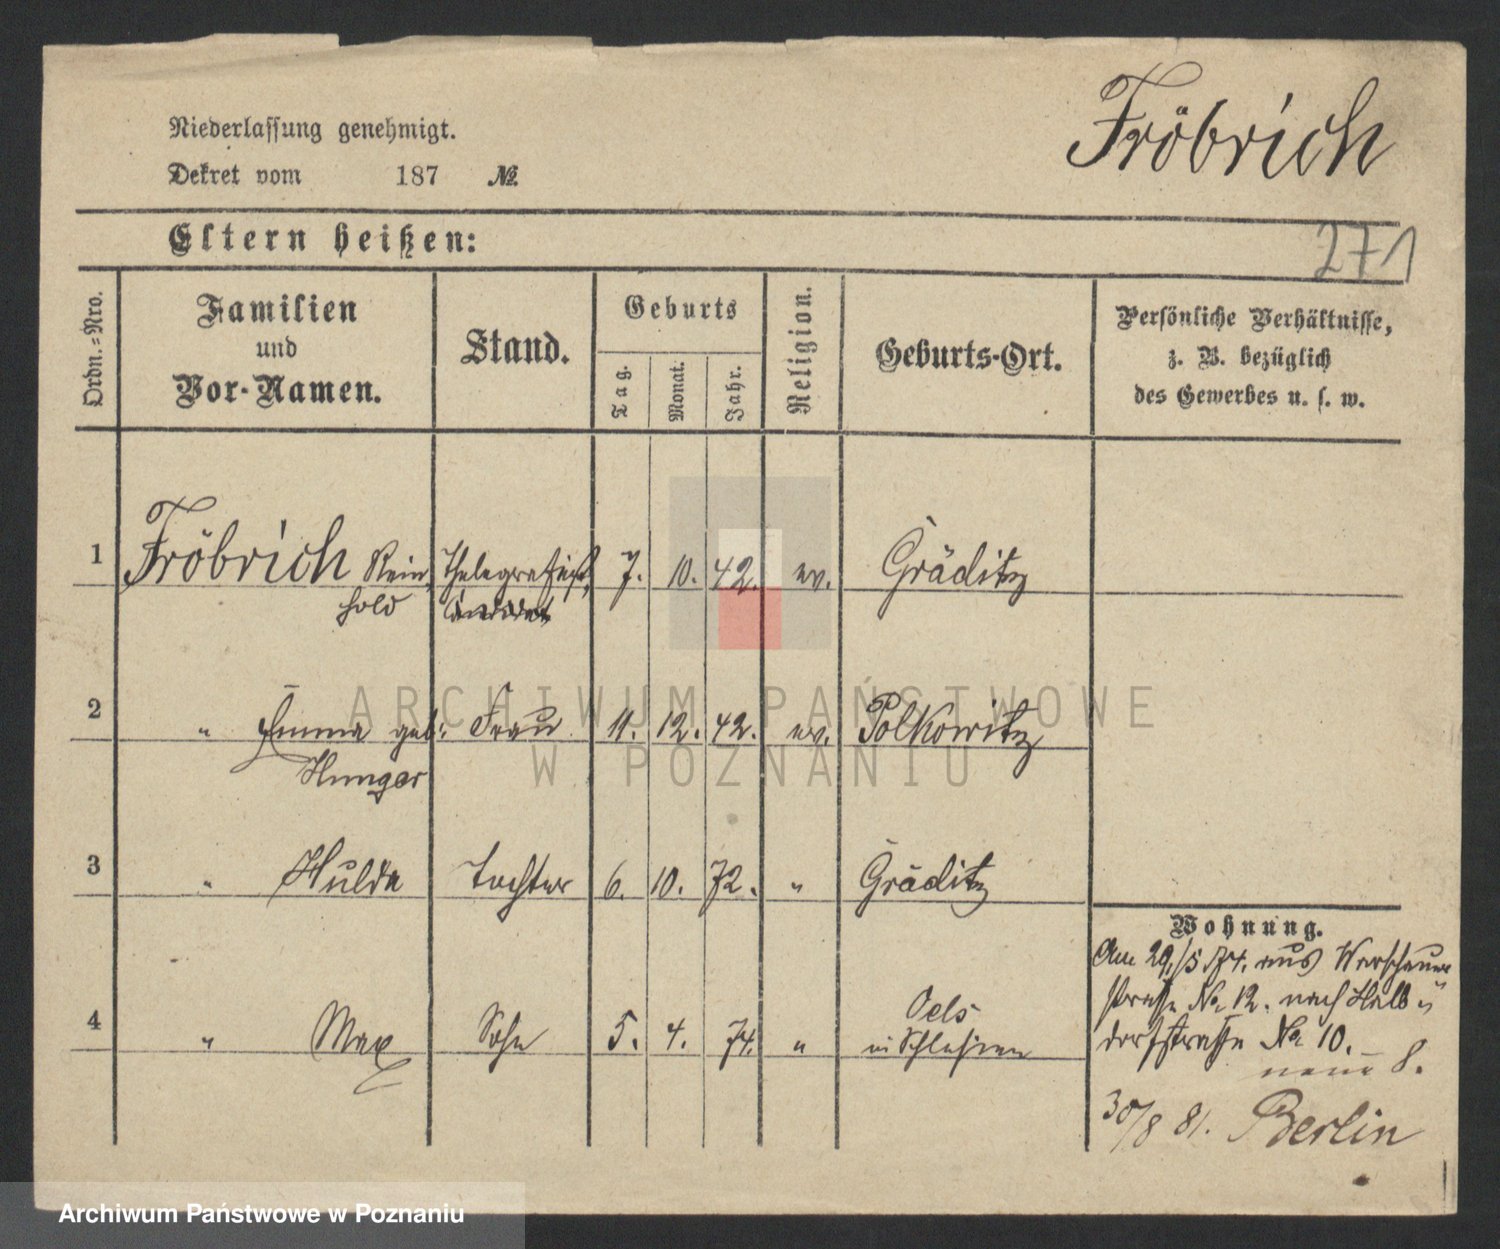 Fröbrich
Niederlassung genehmigt.
Dekret vom 187 №
271
Eltern heißen:
Ordn.-Nro.
Familien
und
Vor-Namen.
Stand.
Geburts
Tag.
Monat.
Jahr.
Religion.
Geburts-Ort.
Persönliche Verhältnisse,
z. B. bezüglich
des Gewerbes u. s. w.
1 Fröbrich Rein- 7. 10. 42. ev. Gräditz
hold
2 " Emma geb: Frau 11. 12. 42. ev. Polkowitz
Hunger
3 " Hulda Tochter 6. 10. 72. " Gräditz
4 " Max Sohn 5. 4. 74. " Oels
in Schlesien
Wohnung.
Am 29./5 74. aus Warschauer
strasse No 12. nach Halb
dorfstrasse No 10.
neue 8.
30/8 81. Berlin
ARCHIWUM PAŃSTWOWE
W POZNANIU
Archiwum Państwowe w Poznaniu